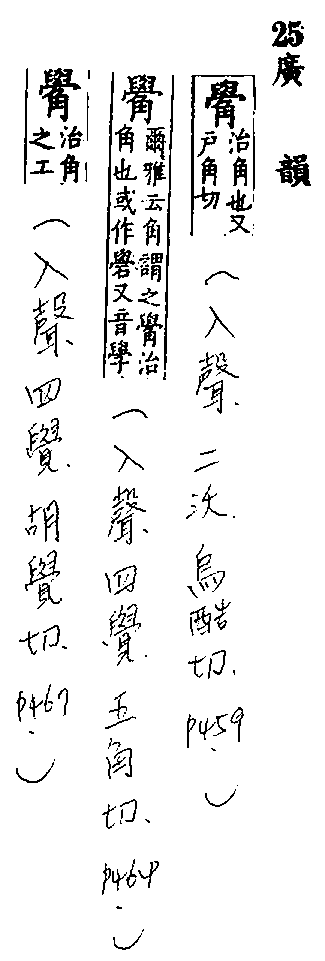 25廣韻
觷治角也又戶角切(入聲、二沃、烏酷切、P459.)
觷爾雅云角謂之觷治角也或作礐又音學(入聲、四覺、五角切、P464.)
觷治角之工(入聲、四覺、胡覺切、P467.)